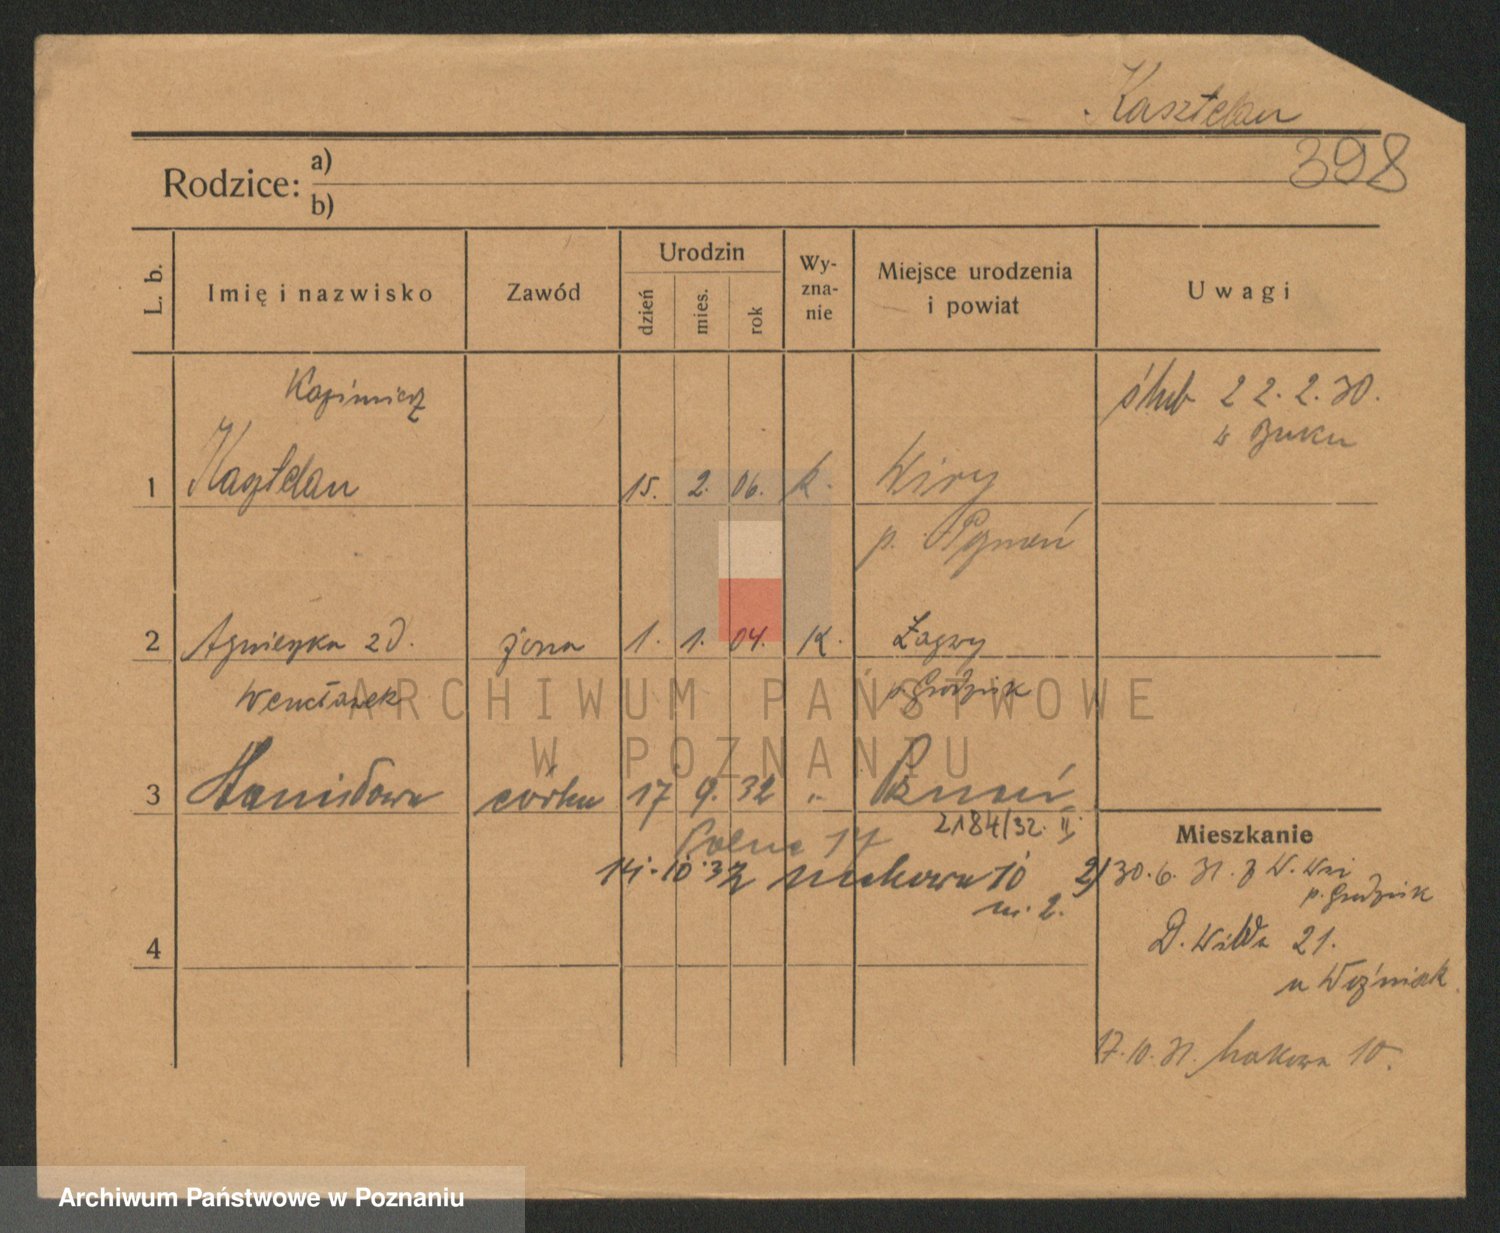 Kasztelan
398
Rodzice: a)
b)
L. b.
Imię i nazwisko
Zawód
Urodzin
dzień
mies.
rok
Wy-
zna-
nie
Miejsce urodzenia
i powiat
Uwagi
Kazimierz
ślub 22.2.30.
w Buku
1 Kasztelan 15. 2. 06. k. Wiry
p. Poznań
2 Agnieszka z d. żona 1. 1. 04. k. Łagwy
Wencławek p. Grodzisk
3 Stanisława córka 17 9. 32 " Poznań
2184/32. II.
Polna 17
14.10.32 Makowa 10
m. 2.
4
Mieszkanie
2) 30.6.31. z W. Wsi
p. Grodzisk
D. Wilda 21.
u Woźniak.
17.10.31. Makowa 10.
ARCHIWUM PAŃSTWOWE
W POZNANIU
Archiwum Państwowe w Poznaniu